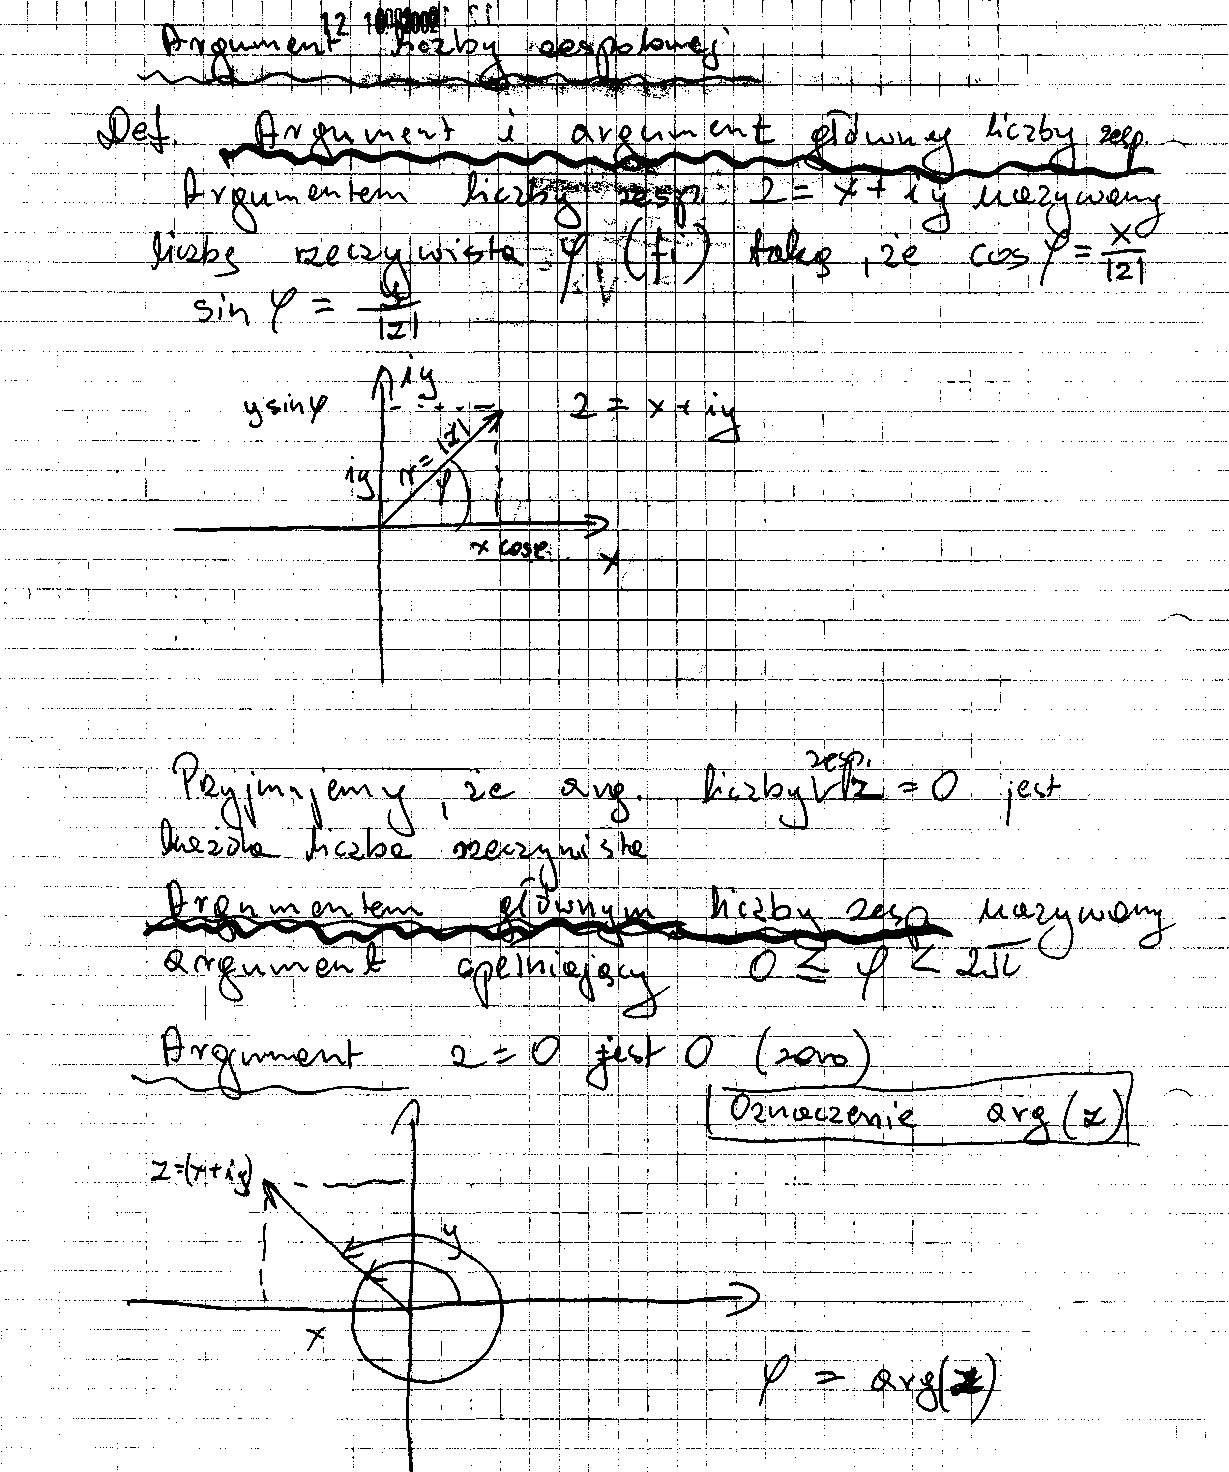 12 10 2002
Argument liczby zespolonej
Def. Argument i argument główny liczby zesp.
Argumentem liczby zesp. z = x + iy nazywamy
liczbę rzeczywistą φ (fi) taką, że cos φ = x/|z|
sin φ = y/|z|
iy
y sin φ
z = x + iy
r = |z|
iy
φ
x cos φ
x
zesp.
Przyjmujemy, że arg. liczby √ z = 0 jest
każda liczba rzeczywista
Argumentem głównym liczby zesp nazywamy
argument spełniający 0 ≤ φ < 2π
Argument z = 0 jest 0 (zero)
Oznaczenie arg(z)
z=(x+iy)
y
x
φ = arg(z)